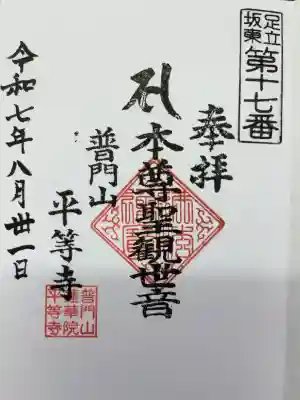 足立
坂東
第十七番
奉拝
本尊聖觀世音
普門山
平等寺
令和七年八月丗一日
普門山
蓮華院
平等寺